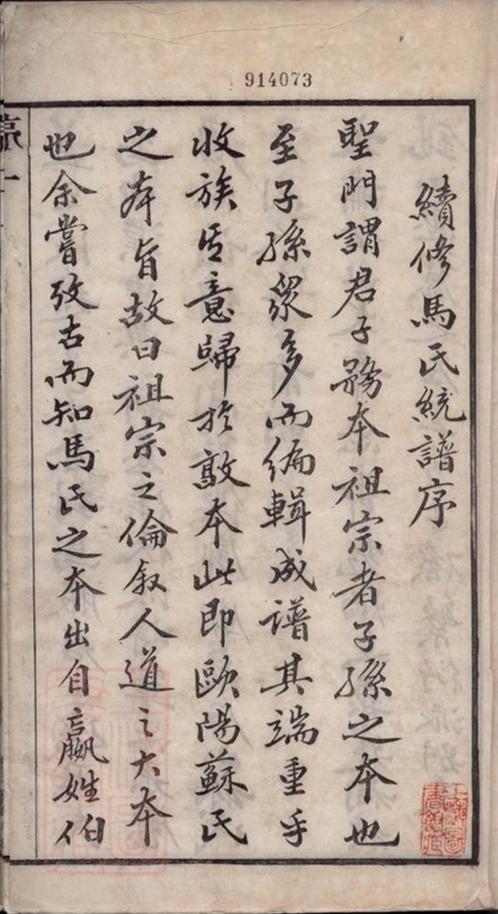 914073
續修馬氏統譜序
聖門謂君子務本祖宗者子孫之本也
至子孫衆多而編輯成譜其端重乎
收族其意歸於敦本此即歐陽蘇氏
之本旨故曰祖宗之倫敘人道之大本
也余嘗攷古而知馬氏之本出自嬴姓伯